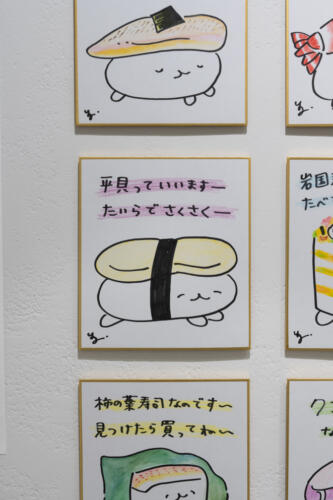 平貝っていいますー
たいらでさくさくー
岩国
たべ
柿の葉寿司なのです〜
見つけたら買ってねい〜